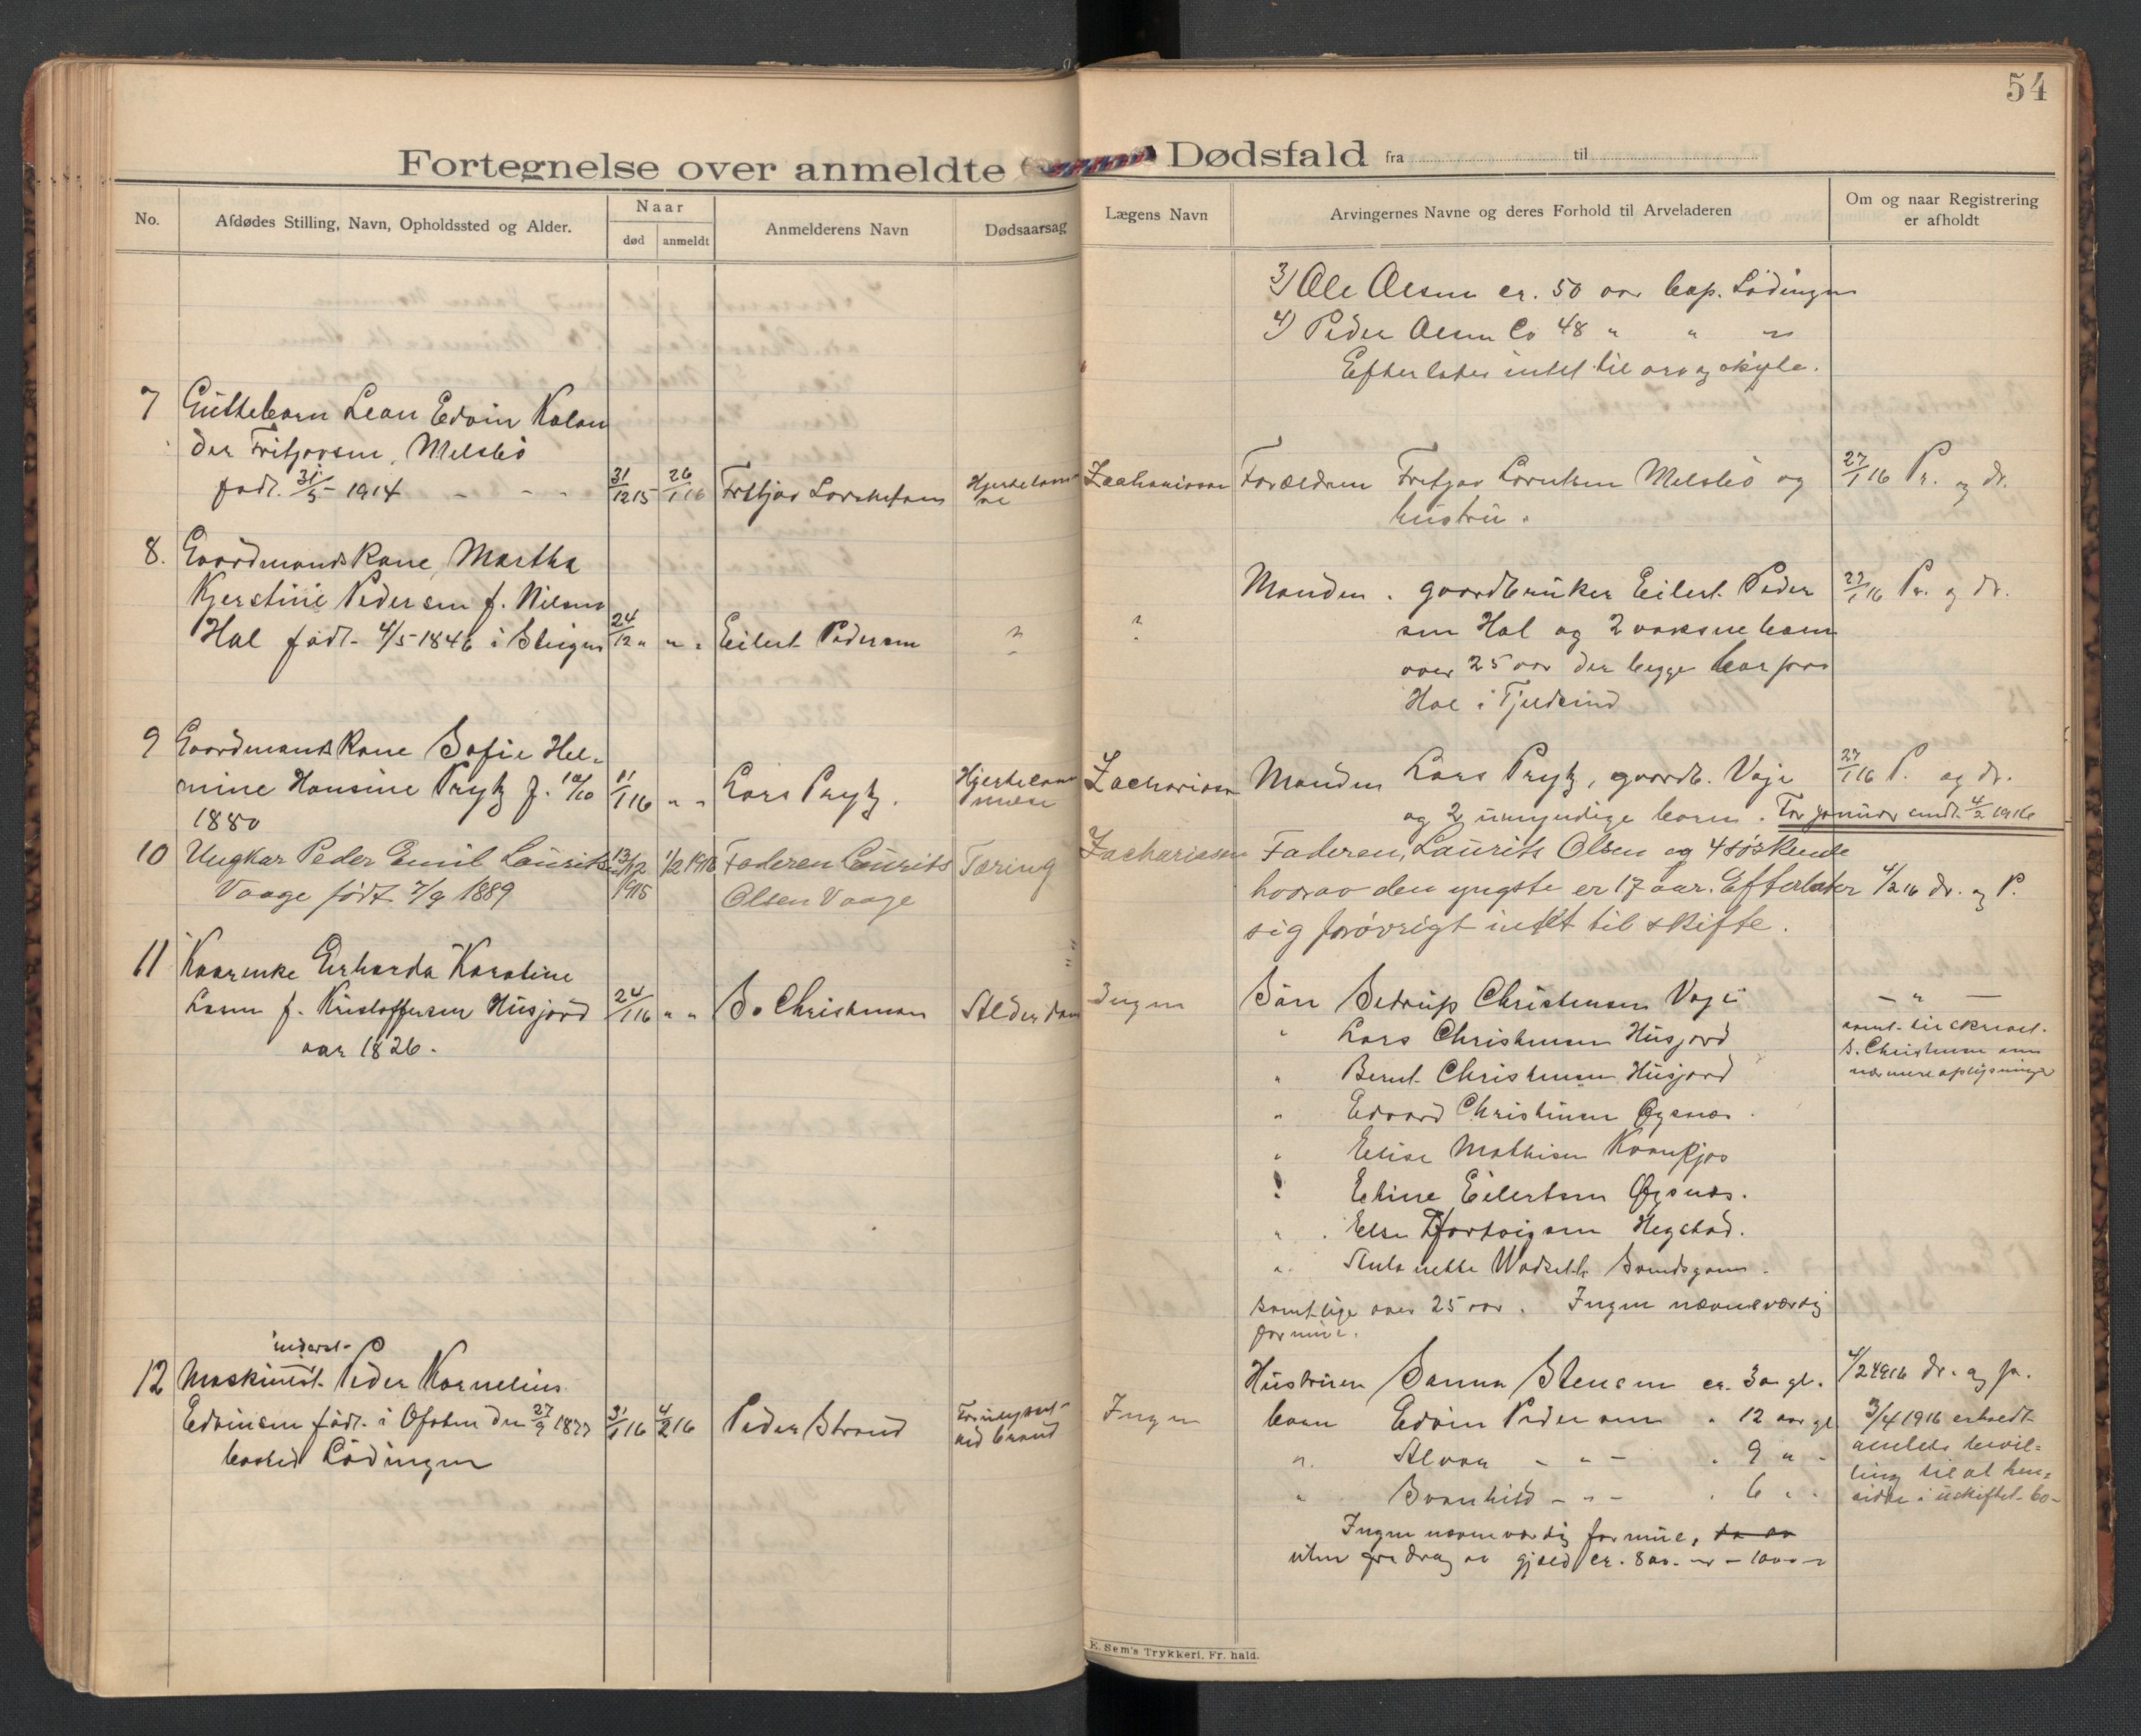 54
Fortegnelse over anmeldte Dødsfald fra til
No.
Afdødes Stilling, Navn, Opholdssted og Alder.
Naar
død
anmeldt
Anmelderens Navn
Dødsaarsag
Lægens Navn
Arvingernes Navne og deres Forhold til Arveladeren
Om og naar Registrering
er afholdt
3) Ole Olsen cr. 50 aar bop. Lødingen
4) Peder Olsen Co 48 " " "
Efterlater intet til arv og skifte.
7 Guttebarn Leon Edvin
der Fritjovsen, Melsbø
født. 31/5 - 1914 - - - 31/12 15 26/1 16 Fritjov Zachariassen Forældren Fritjov Melsbø og 27/1 16 Pr. og dr.
hustru.
8. Gaardmandskone, Martha
Kjerstine Pedersen f. Nilsen
Hol født - 4/5 1846 i 24/12 " " " Eilert Pedersen ? ?
Manden . gaardbruker Eilert Peder 27/1 16 Pr. og dr.
sen Hol og 2 voksne barn
over 25 aar der begge bor paa
Hol i Tjeldsund
9 Gaardmandskone Sofie Hel-
mine Hansine Prytz f. 10/10 11/1 16 " " Lars Prytz. Zachariassen Manden Lars Prytz, gaardb. Vaje 27/1 16 P. og dr.
1880
og 2 umyndige barn. For januar sendt. 4/2 1916
10 Ungkar Peder Emil Laurits 13/12 1/2 1916 Faderen Laurits Tæring Zachariassen Faderen, Laurits Olsen og 4 søskende
Vaage født 7/9 1889 1915 Olsen Vaage hvorav den yngste er 17 aar. Efterlater 4/2 16 dr. og P.
sig forøvrigt intet til skifte.
11 Kaarenke Erharda Karoline
f. Kristoffersen Husjord 24/1 16 " " S. Christensen Alderdom Ingen Søn Sedrup Christensen Vaje - " -
aar 1826.
" Lars Christensen Husjord
samt. tilskrevet.
S. Christensen om
nærmere oplysninger
" Bernt Christensen Husjord
" Edvard Christensen Øysnes.
" Elise Mathisen Kvankjos
" Eline Eilertsen Øysnes.
" Else Hartvigsen Hegstad.
" Antonette
samtlige over 25 aar. Ingen nævneværdig
formue.
inderst.
12 Maskinist. Peder Kornelius
Edvinsen født. i Ofoten den 27/9 1877 31/1 16 4/2 16 Peder Strand Ingen
bosted Lødingen
Hustruen Sanna Stensen cr. 30 gl. 4/2 1916 dr. og pr.
barn Edvin Pedersen " 12 aar gl
" Alvon - " - " 9 " "
" Svanhild - " - " 6 " "
3/4 1916 erholdt
amtets bevil-
ling til at hen-
sidde i uskiftet bo -
Ingen nævneværdig formue,
uten fradrag av gjæld cr. 800 - 1000
E. Sem's Trykkeri, Fr. hald.